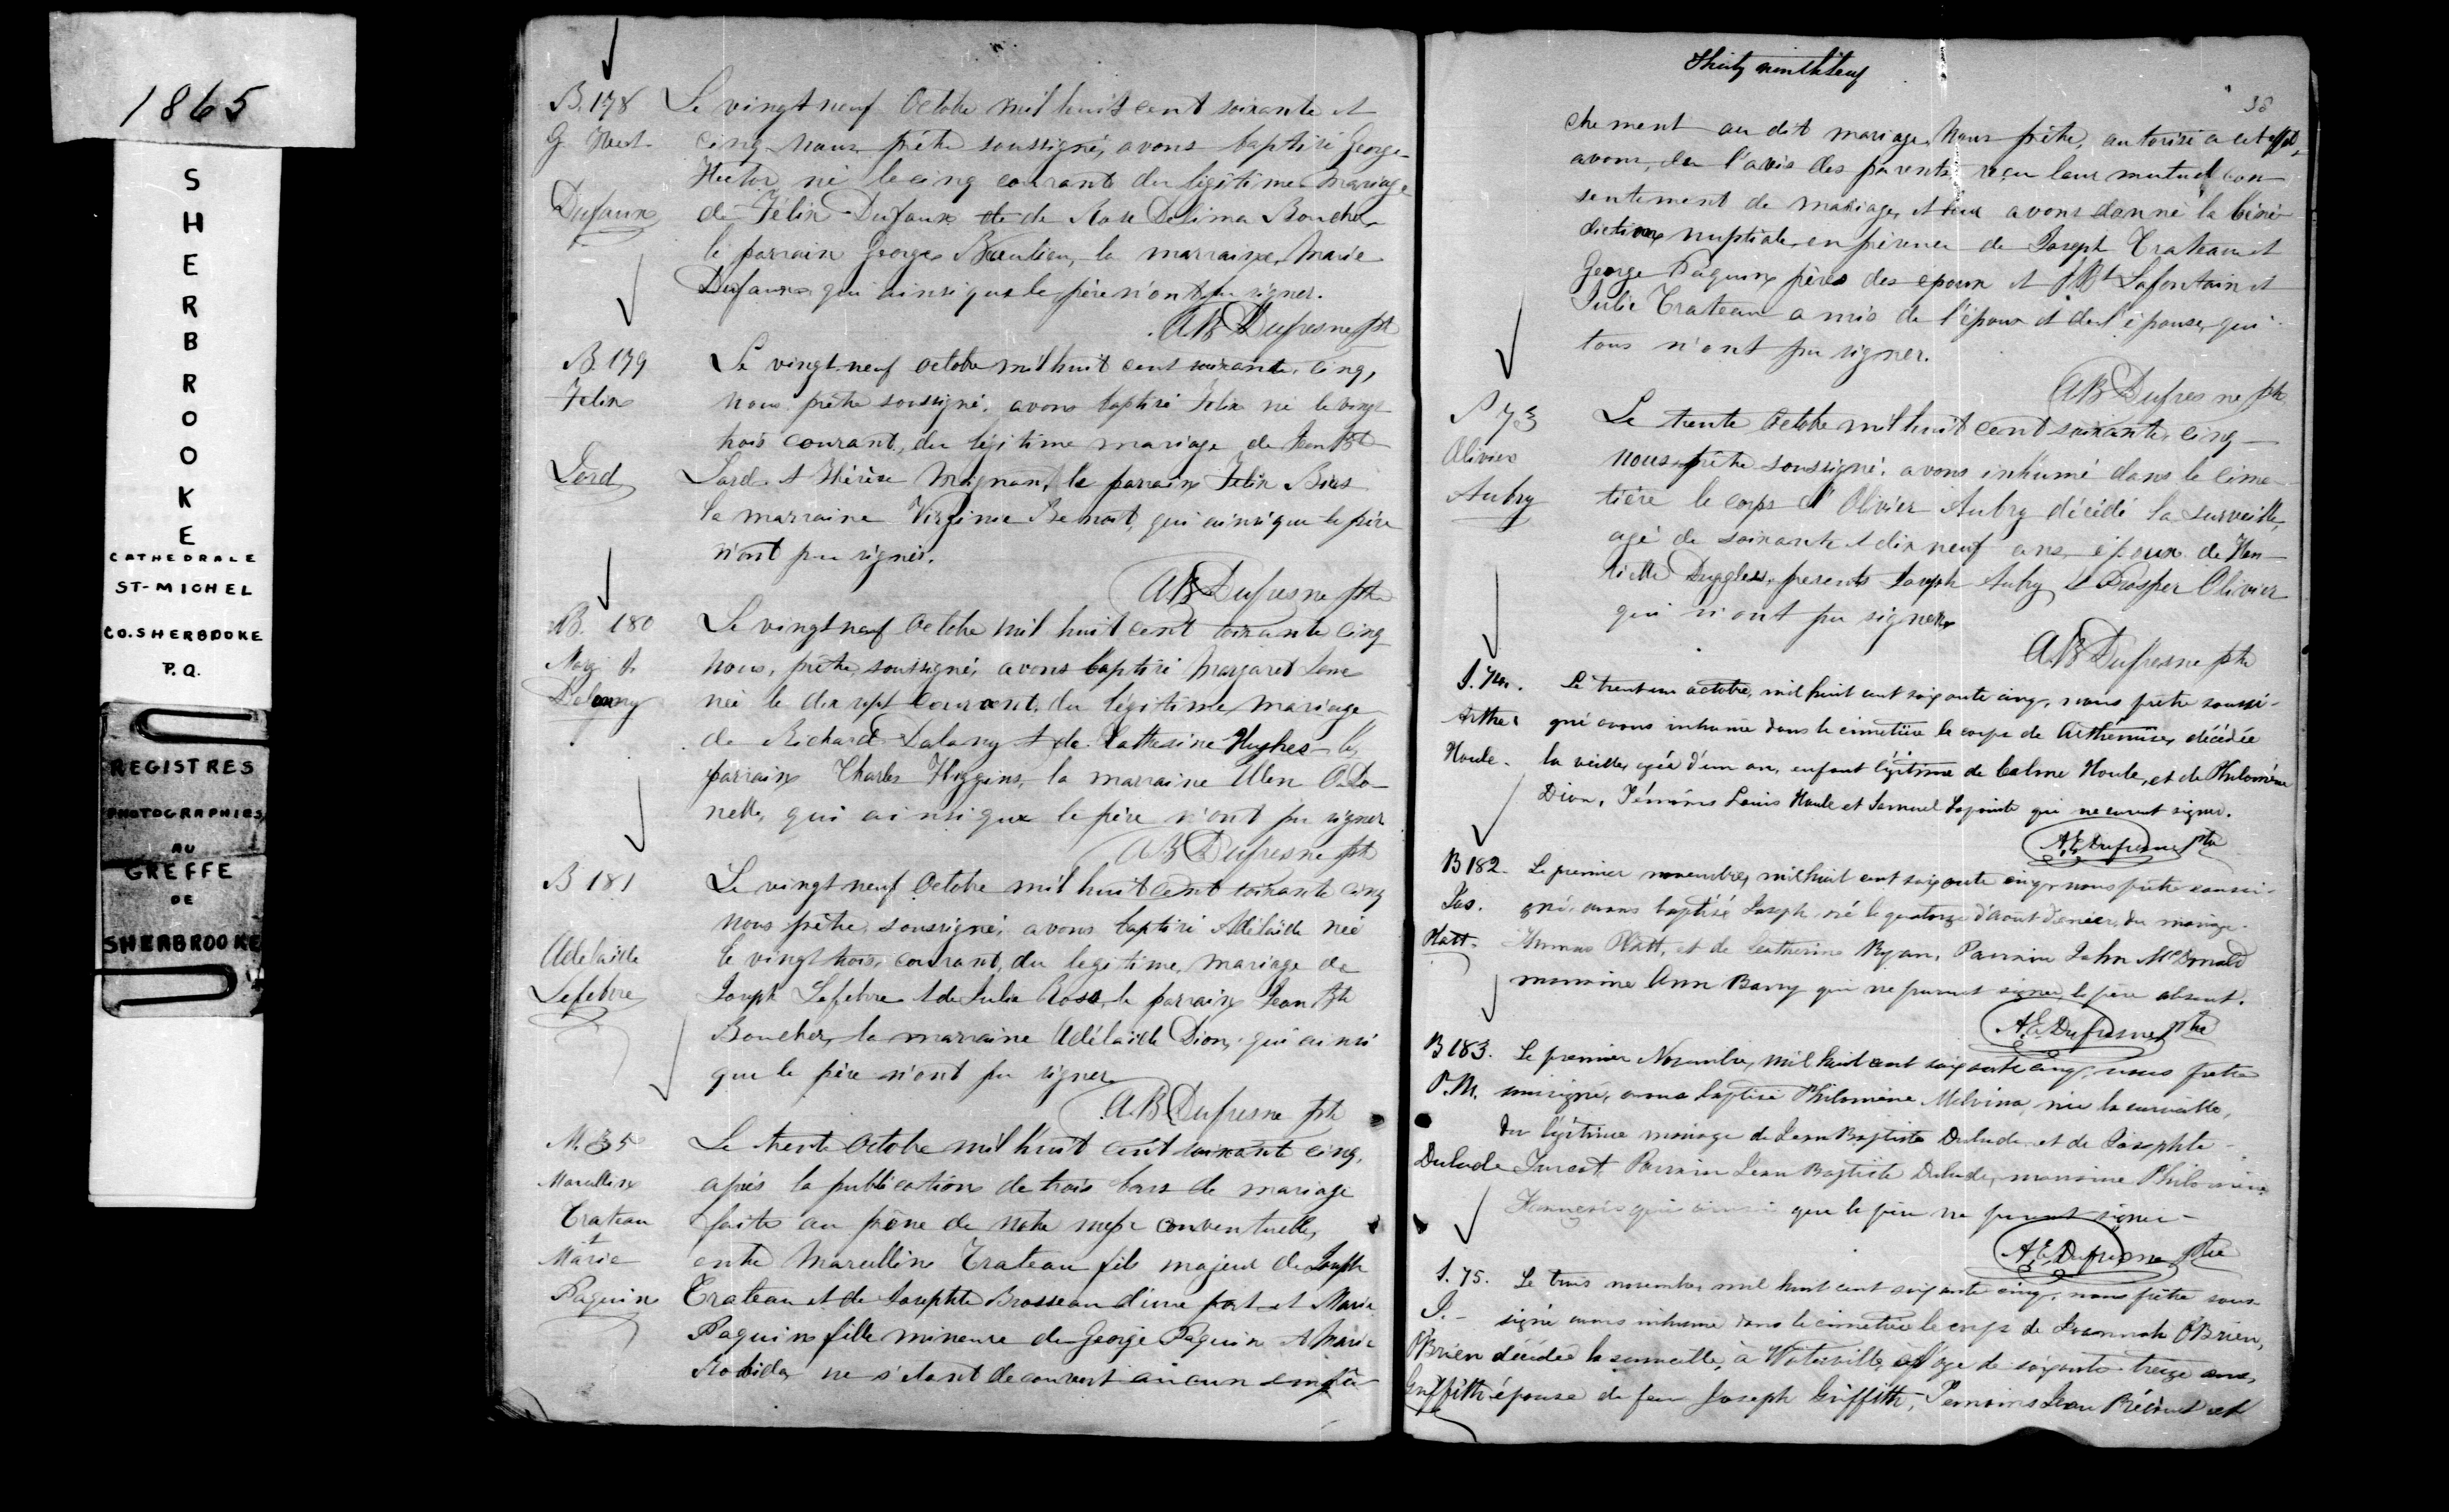 1865
SHERBROOKE
CATHEDRALE
ST-MICHEL
CO. SHERBROOKE
P.Q.
REGISTRES
PHOTOGRAPHIES
AU
GREFFE
DE
SHERBROOKE
B. 178
G. Hect.
Dufaux
Le vingt neuf Octobre mil huit cent soixante et
cinq nous prêtre soussigné, avons baptisé George
Hector né le cinq courant du légitime mariage
de Félix Dufaux et de Rose Delima Boucher
le parrain George Beaulieu, la marraine Marie
Dufaux qui ainsi que le père n'ont pu signer.
AB Dufresne ptr
B. 179
Felix
Lord
Le vingt-neuf octobre mil huit cent soixante, cinq,
nous prêtre soussigné, avons baptisé Felix né le vingt
trois courant, du légitime mariage de Jean Bt
Lord et Thérèse Maignan, le parrain Felix Biers
la marraine Virginie Benoit, qui ainsi que le père
n'ont pu signer.
AB Dufresne ptr
B. 180
Marg. J.
Delany
Le vingt neuf Octobre mil huit cent soixante cinq
nous, prêtre, soussigné, avons baptisé Margaret Jane
née le dix sept courant, du légitime mariage
de Richard Dalany et de Catherine Hughes le
parrain Charles Higgins, la marraine Ellen O.Do-
nelle, qui ainsi que le père n'ont pu signer
AB Dufresne ptr
B 181
Adelaide
Lefebvre
Le vingt neuf Octobre mil huit cent soixante cinq
nous prêtre, soussigné, avons baptisé Adélaïde née
le vingt trois, courant, du legitime, mariage de
Joseph Lefebvre et de Julie Rose, le parrain Jean Bte
Boucher, la marraine Adélaïde Dion, qui ainsi
que le père n'ont pu signer
A.B Dufresne ptr
M. 35
Marcellin
Crateau
et
Marie
Paquin
Le trente Octobre mil huit cent soixante cinq,
après la publication de trois bans de mariage
faite au prône de notre messe conventuelle,
entre Marcellin Crateau fils majeur de Joseph
Crateau et de Josephte Brosseau d'une part et Marie
Paquin fille mineure de George Paquin et Marie
Robida, ne s'étant decouvert aucun empê-
38
chement au dit mariage, Nous prêtre, autorisé a cet effet,
avons, de l'avis des parents, reçu leur mutuel con
sentement de mariage, et leur avons donné la béné
diction nuptiale en présence de Joseph Crateau et
George Paquin pères des epoux et J Bt Lafontain et
Julie Crateau amis de l'époux et de l'épouse, qui
tous n'ont pu signer.
AB Dufresne ptr
S 73
Olivier
Aubry
Le trente Octobre mil huit cent soixante, cinq
nous prêtre soussigné, avons inhumé dans le cime
tière le corps d'Olivier Aubry décédé la surveille,
agé de soixante et dix neuf ans, époux de Hen
riette Duggless, presents Joseph Aubry et Prosper Olivier
qui n'ont pu signer
AB Dufresne ptr
S. 74.
Arthe
Houle.
Le trente un octobre, mil huit cent soixante cinq, nous prêtre soussi-
gné avons inhumé dans le cimetière le corps de Arthémise, décédée
la veille, agée d'un an, enfant légitime de Calme Houle, et de Philomène
Dion, Témoins Louis Houle et Samuel Lapointe qui ne surent signer.
A.E. Dufresne ptre
B 182.
Jos.
Platt.
Le premier novembre, mil huit cent soixante cinq, nous prêtre soussi-
gné, avons baptisé Joseph né le quatorze d'aout dernier, du mariage
Thomas Platt, et de Catherine Ryan, Parrain John McDonald
marraine Ann Barry qui ne purent signer, le père absent.
A.E. Dufresne ptre
B 183.
P.M.
Dulude
Le premier Novembre, mil huit cent soixante cinq, nous prêtre
soussigné, avons baptisé Philomène Melvina, née la surveille,
du légitime mariage de Jean Baptiste Dulude et de Josephte
Turcot, Parrain Jean Baptiste Dulude, marraine Philomène
que le père ne purent signer
A.E. Dufresne ptre
S. 75.
S.
O'Brien
Griffith
Le trois novembre, mil huit cent soixante cinq, nous prêtre sous-
signé avons inhumé dans le cimetière le corps de Susannah O'Brien,
décédée la surveille, à Waterville, à l'age de soixante treize ans,
épouse de feu Joseph Griffith, Temoins Jean et